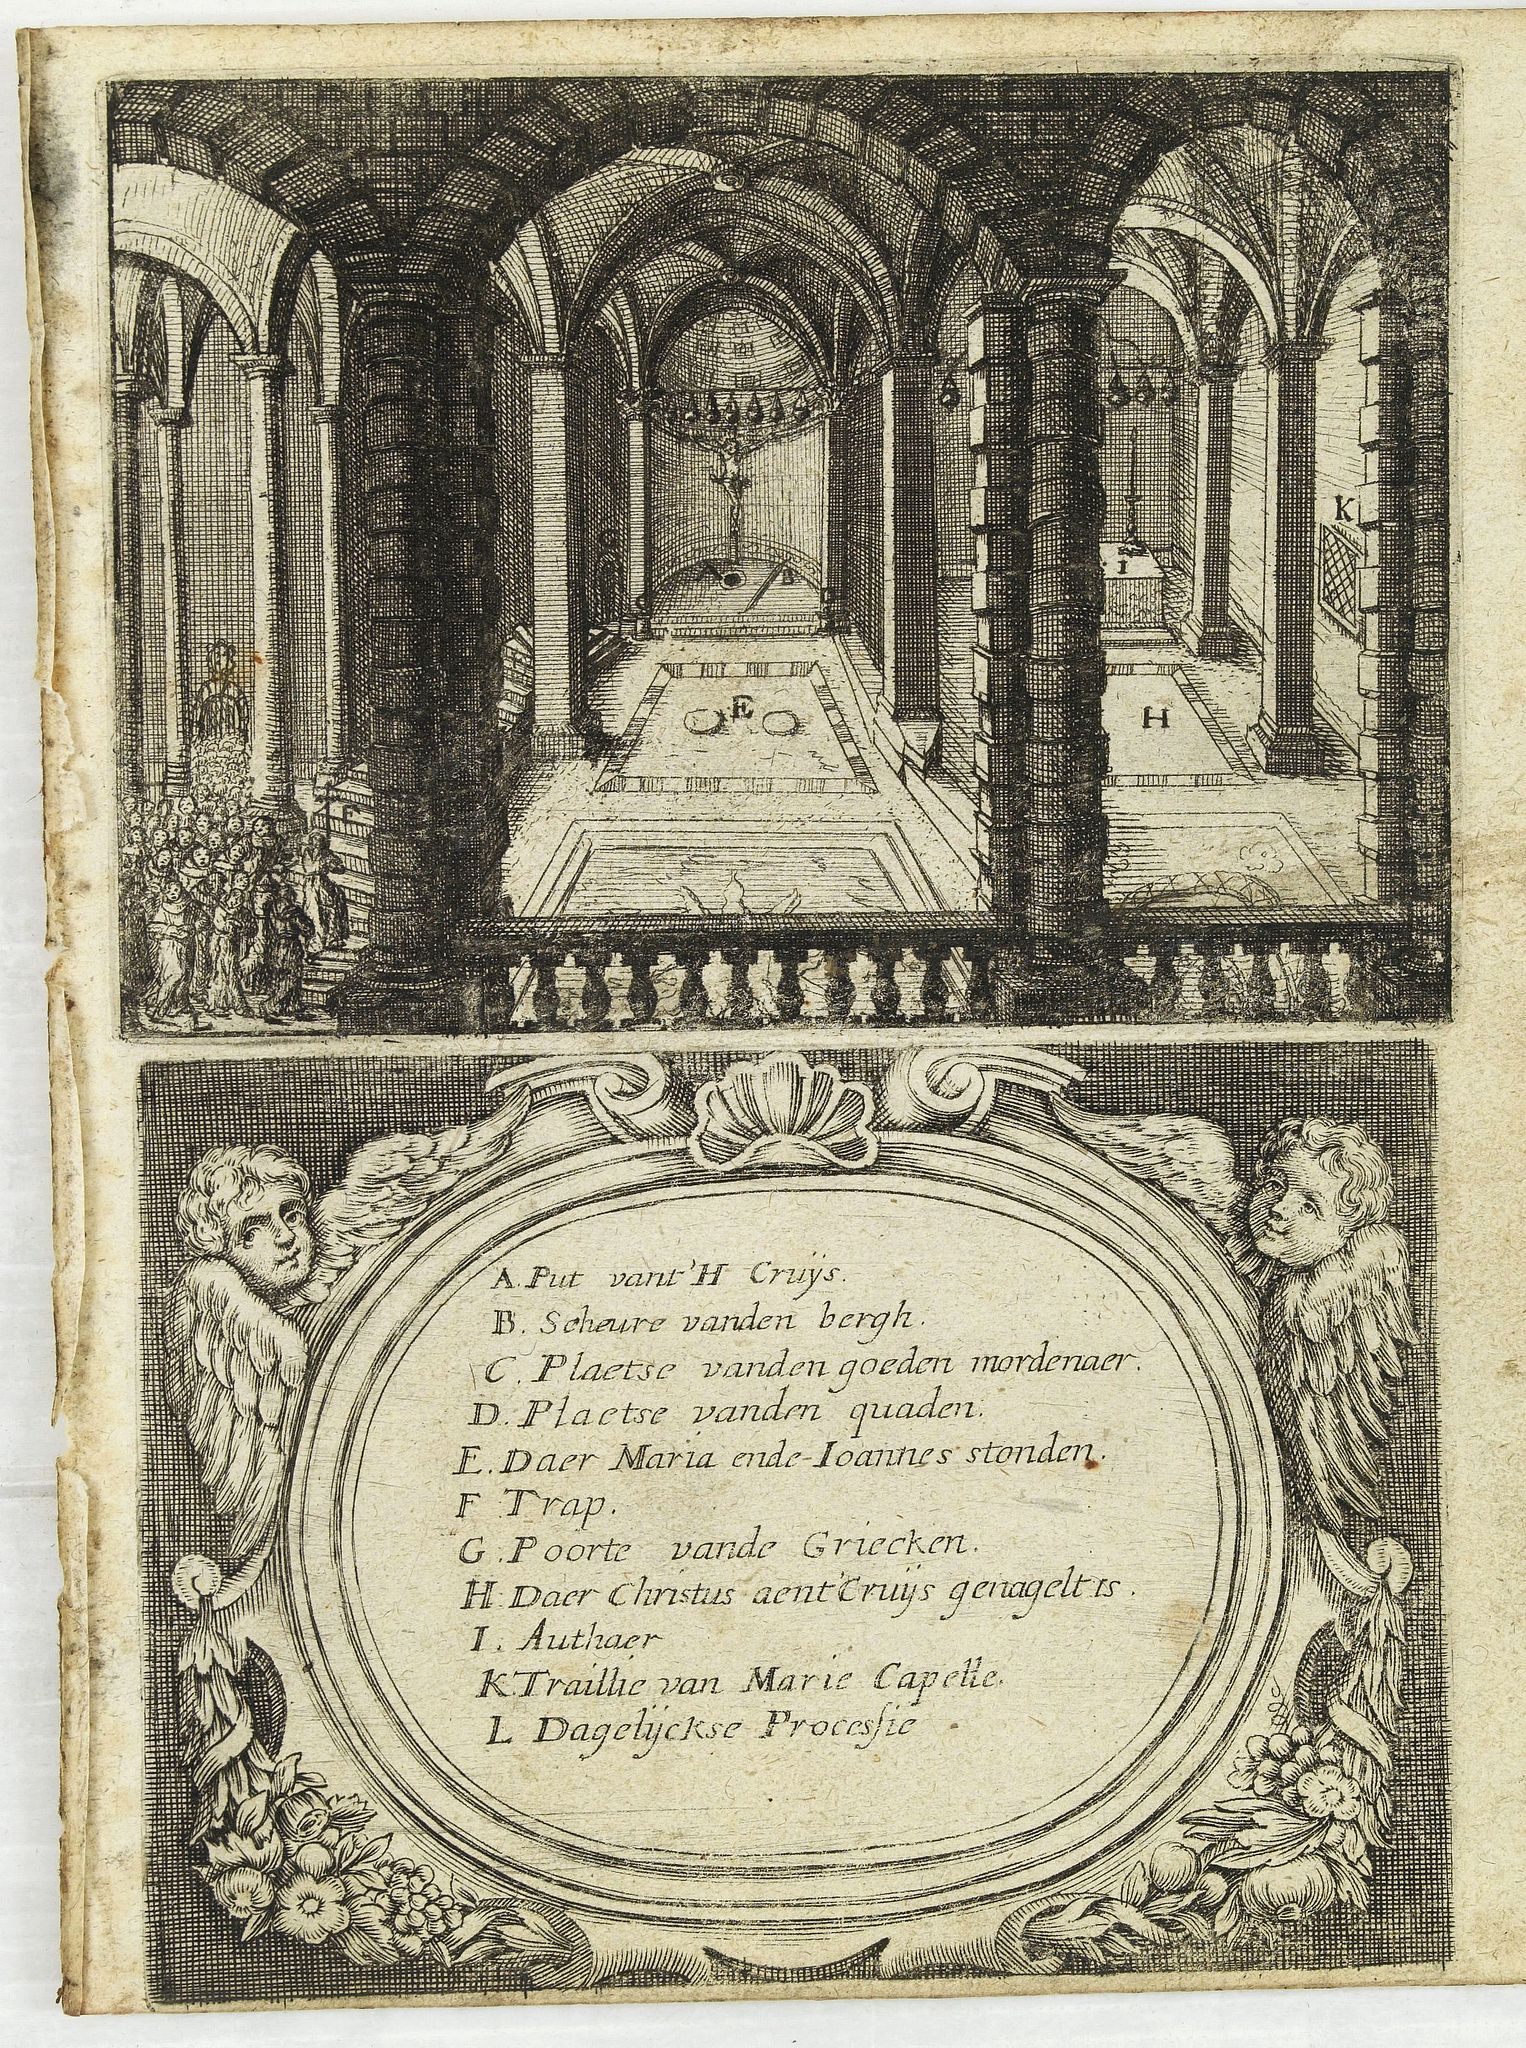 K
A B
I
E
H
F
A. Put vant'H Cruÿs.
B. Scheure vanden bergh.
C. Plaetse vanden goeden mordenaer.
D. Plaetse vanden quaden.
E. Daer Maria ende Ioannes stonden.
F Trap.
G. Poorte vande Griecken.
H. Daer Christus aent'Cruÿs genagelt is.
I. Authaer
K Traillie van Marie Capelle.
L Dagelÿckse Procesſie